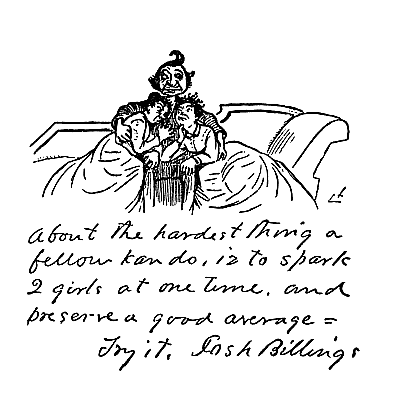 About the hardest thing a
fellow kan do, iz to spark
2 girls at one time, and
preserve a good average =
Try it. Josh Billings